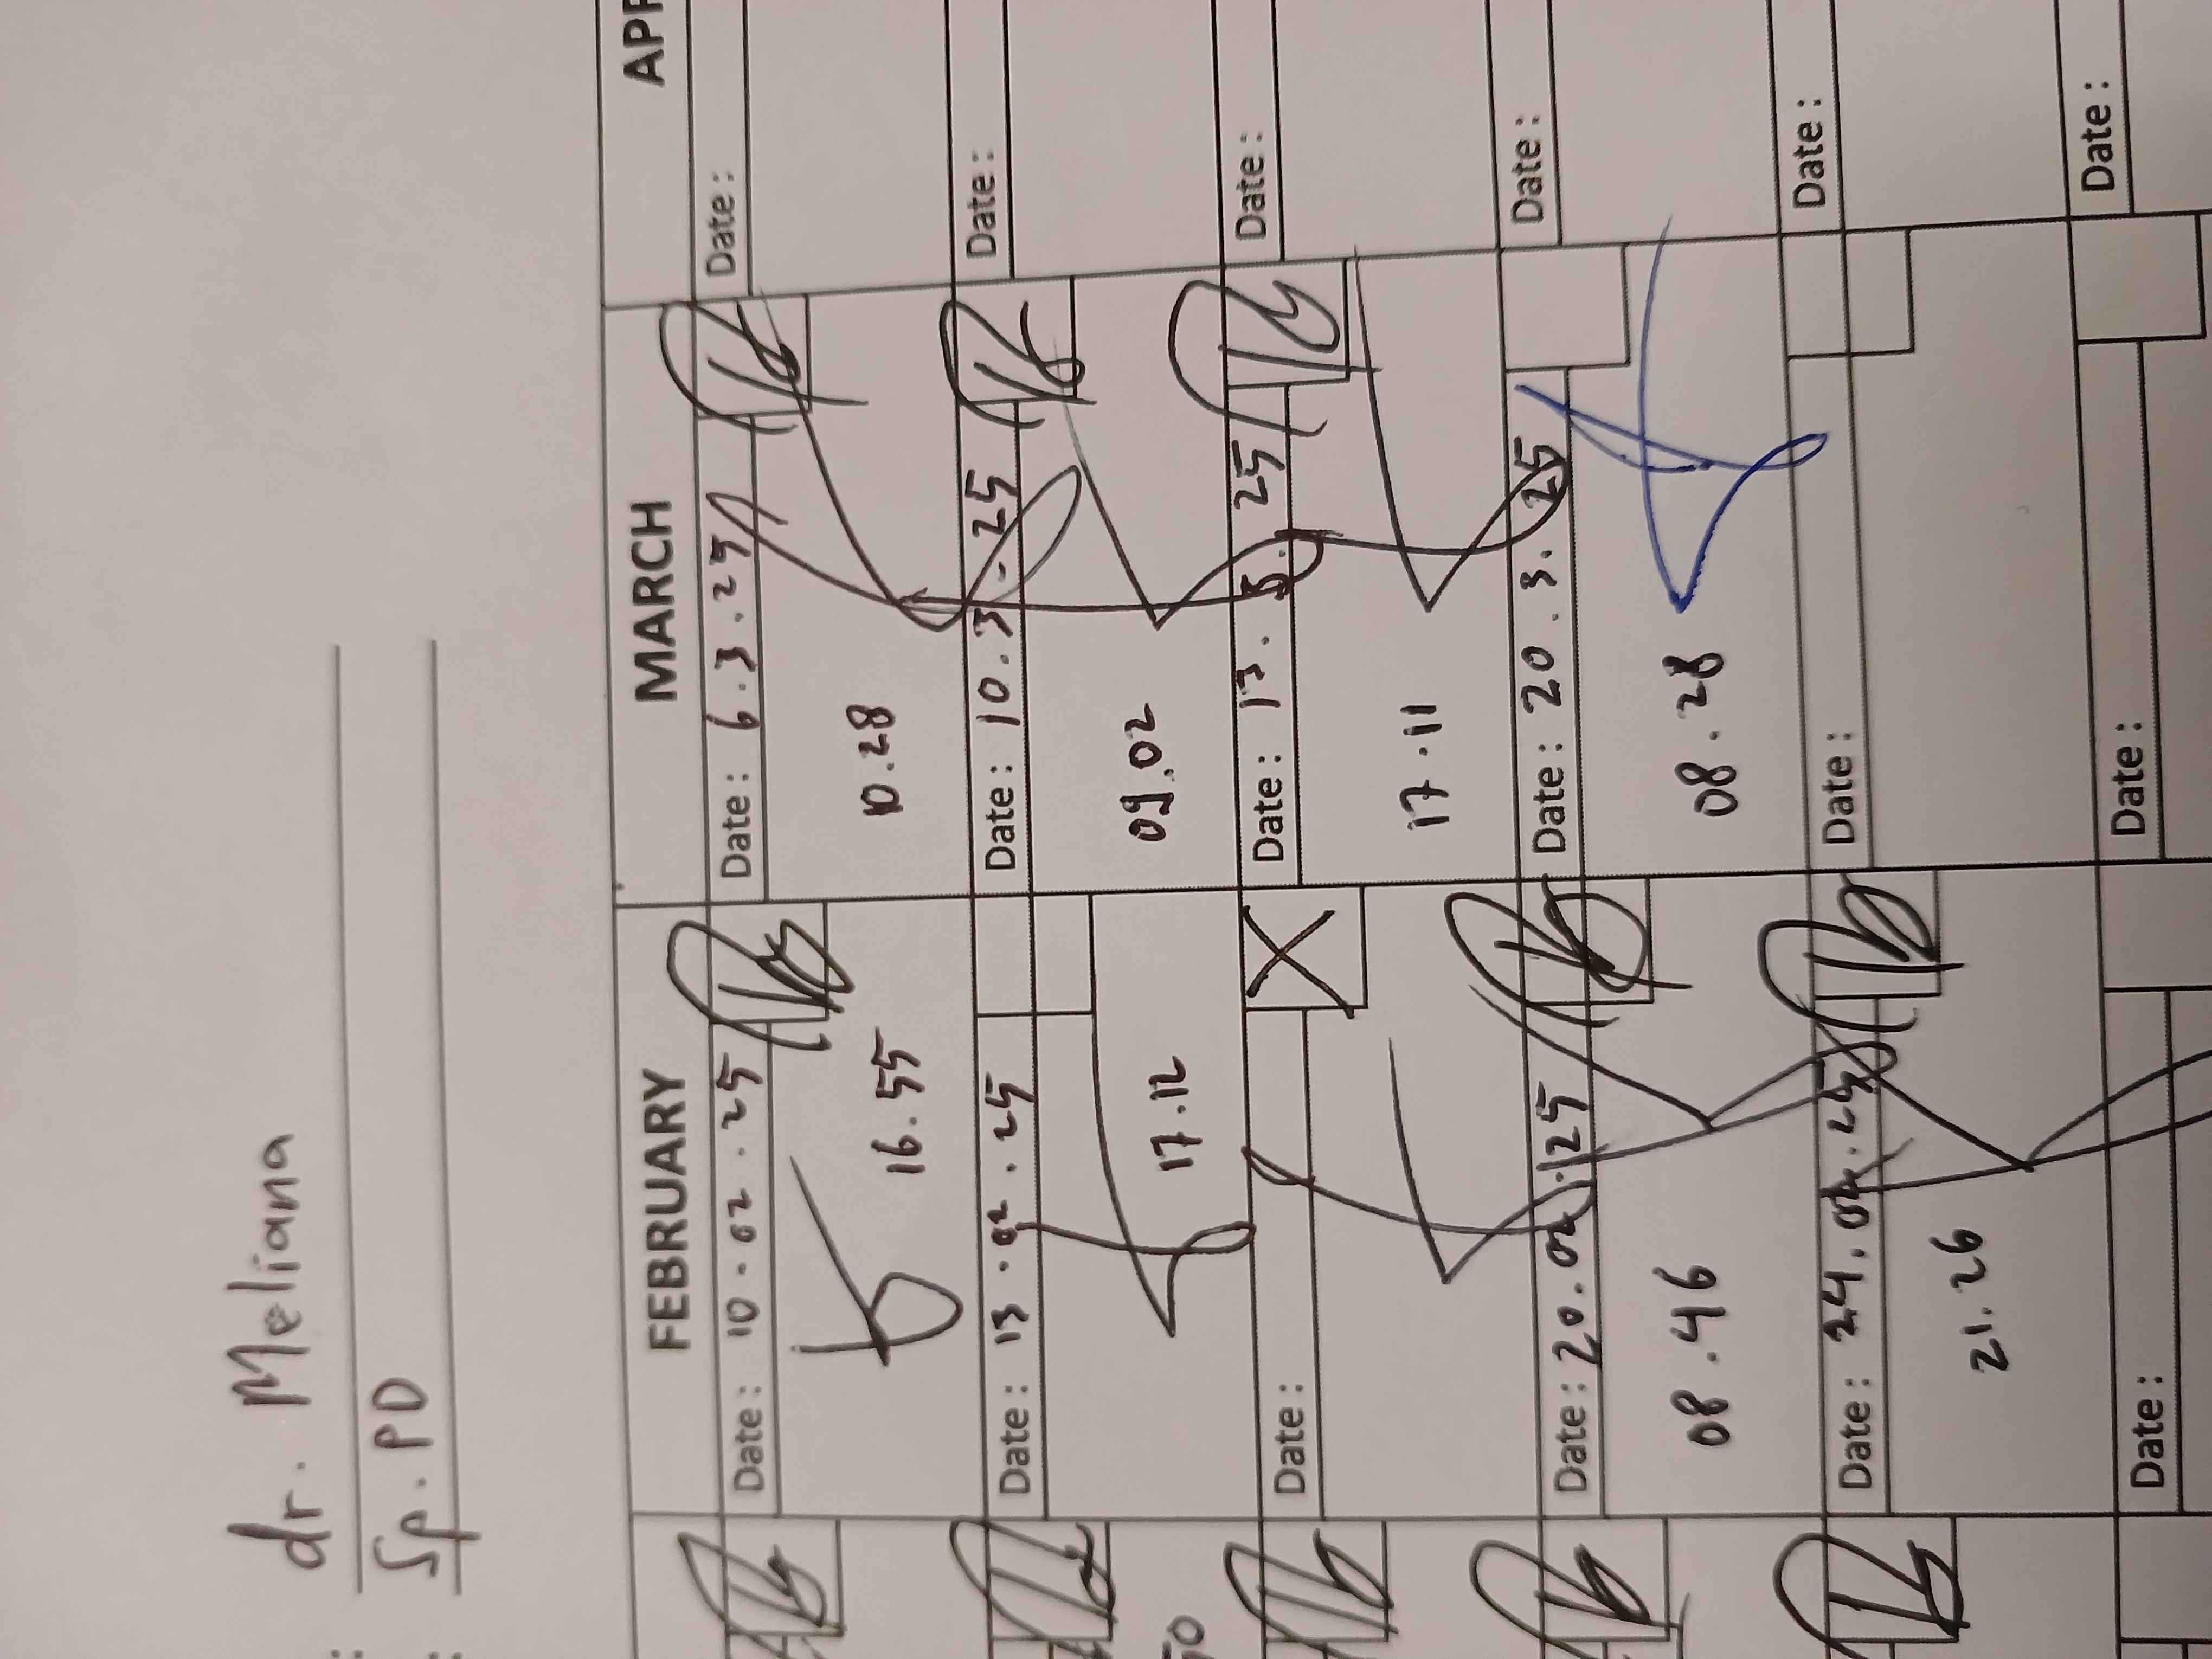 : dr. Meliana
: Sp. PD
FEBRUARY MARCH
Date : 10.02.25 Date : 6.3.25 Date :
16.55 10.28
Date : 13.02.25 Date : 10.3.25 Date :
17.12 09.02
50
Date : Date : 13. 25 Date :
17.11
Date : 20.02.25 Date : 20.3.25 Date :
08.46 08.28
Date : 24.02.25 Date : Date :
21.26
Date : Date : Date :